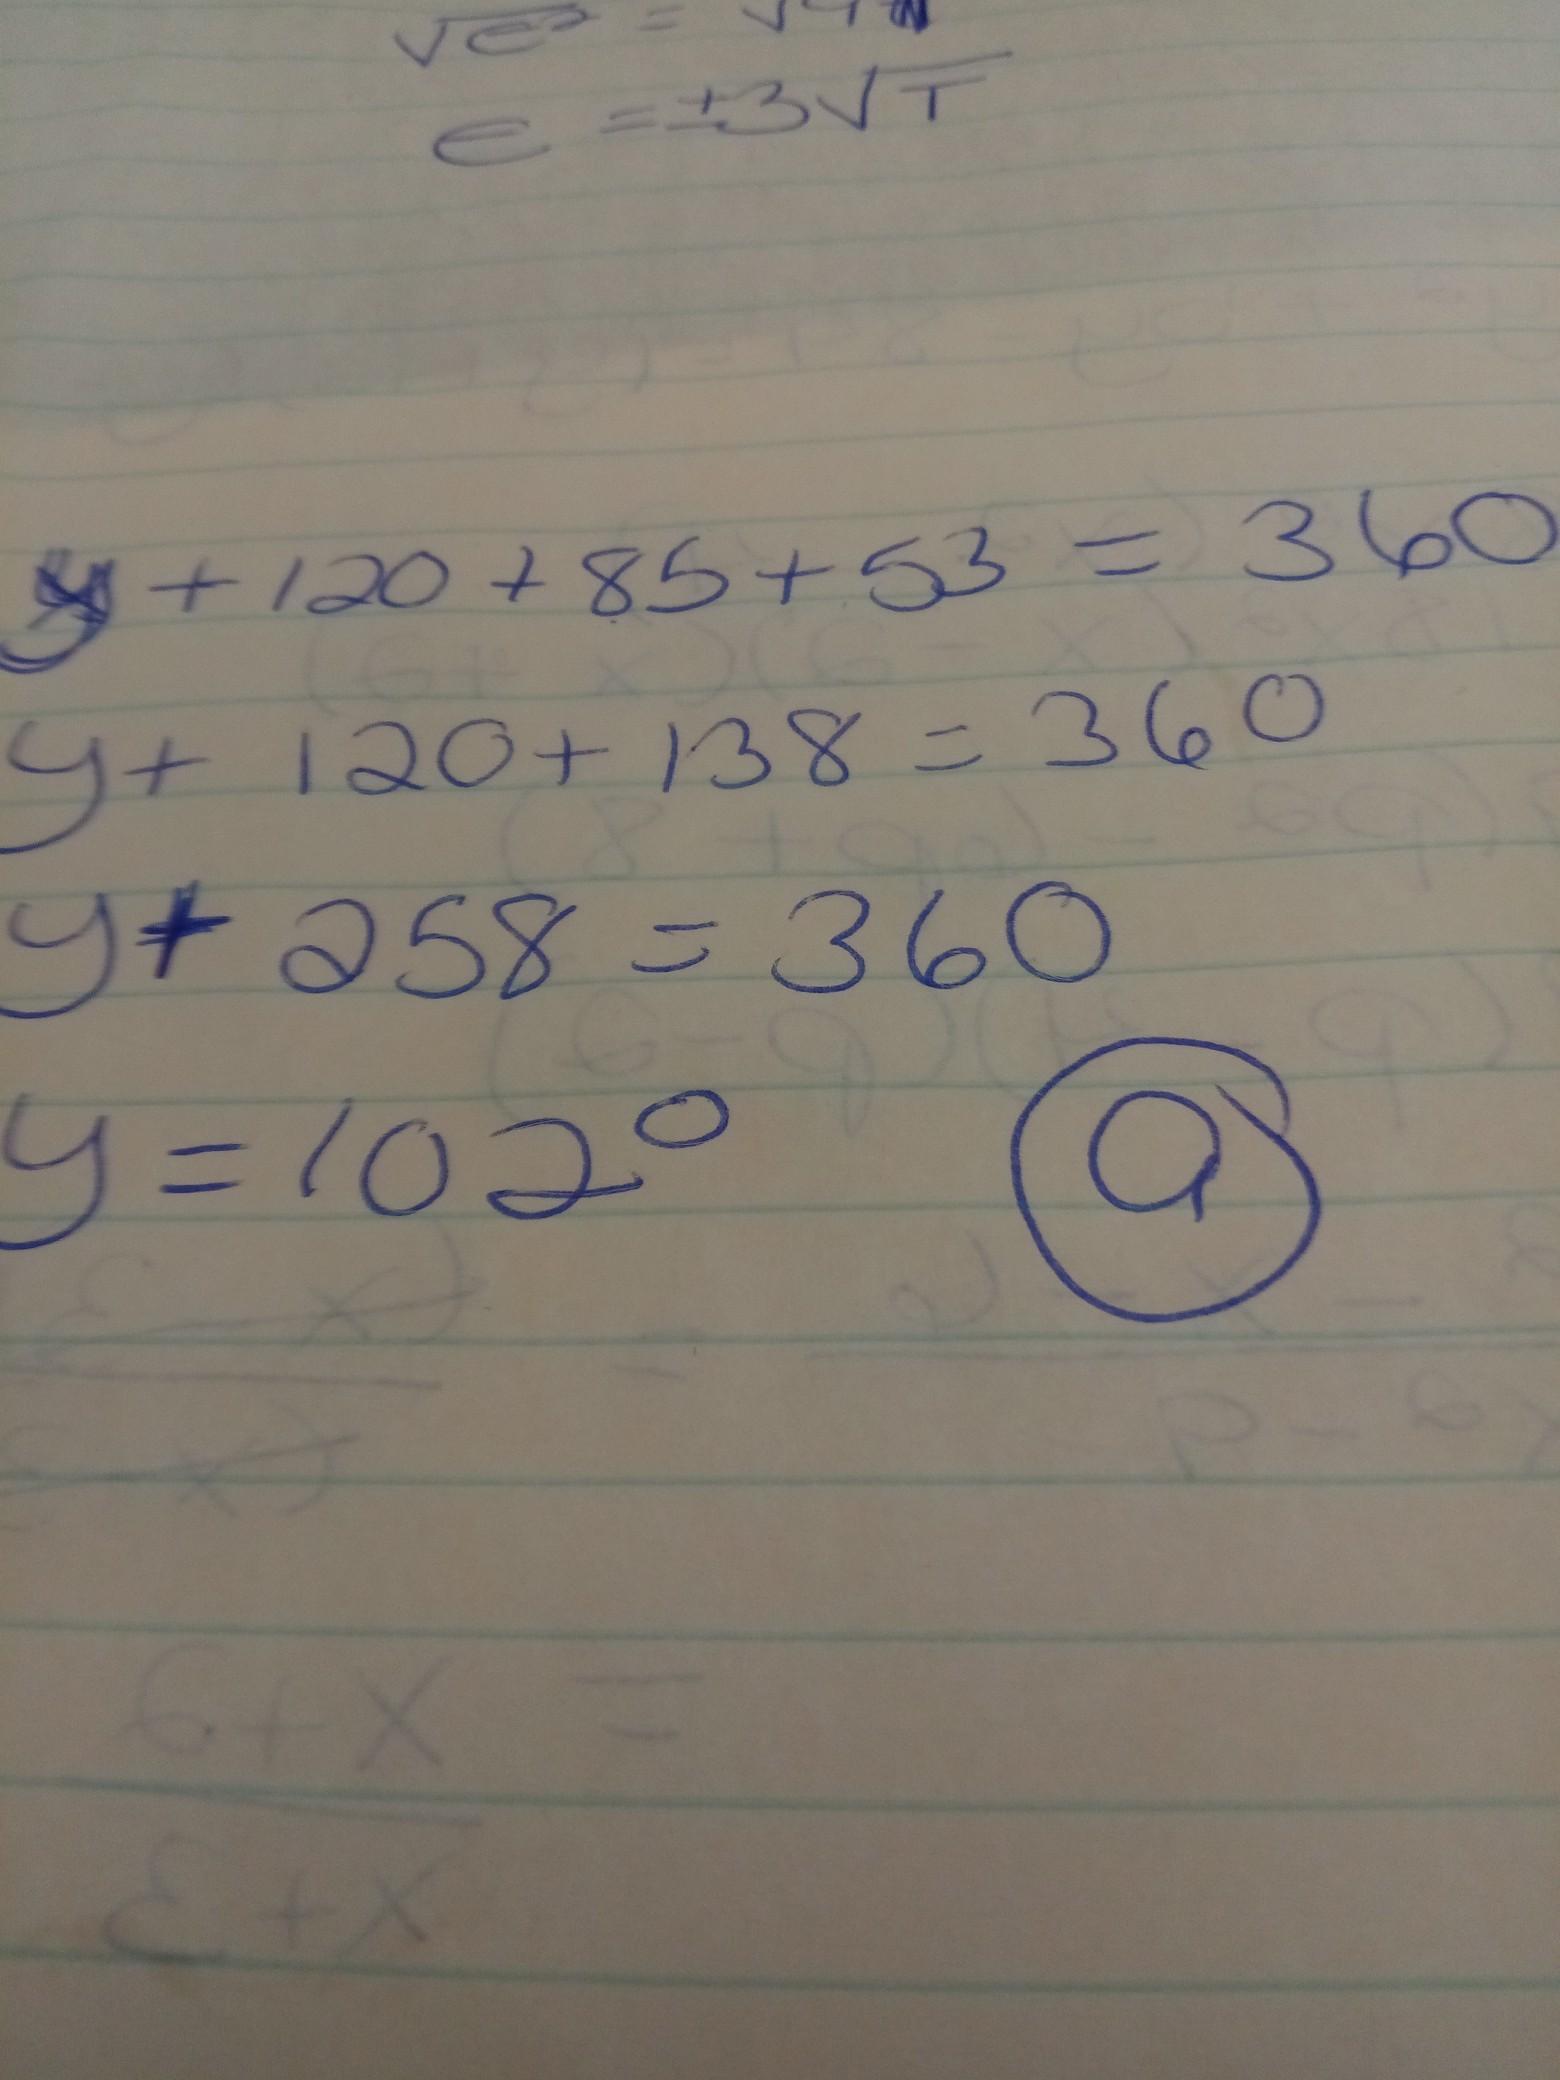 e = ±3√T
y + 120 + 85 + 53 = 360
y + 120 + 138 = 360
y + 258 = 360
y = 102° a